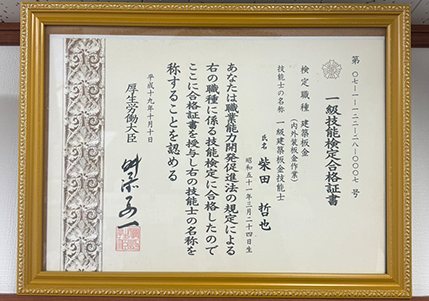 第〇七-一-一二-一八-〇〇〇七号
一級技能検定合格証書
検定職種 建築板金
(内外装板金作業)
技能士の名称 一級建築板金技能士
氏名 柴田哲也
昭和五十一年三月二十四日生
あなたは職業能力開発促進法の規定による
右の職種に係る技能検定に合格したので
ここに合格証書を授与し右の技能士の名称を
称することを認める
平成十九年十月十日
厚生労働大臣